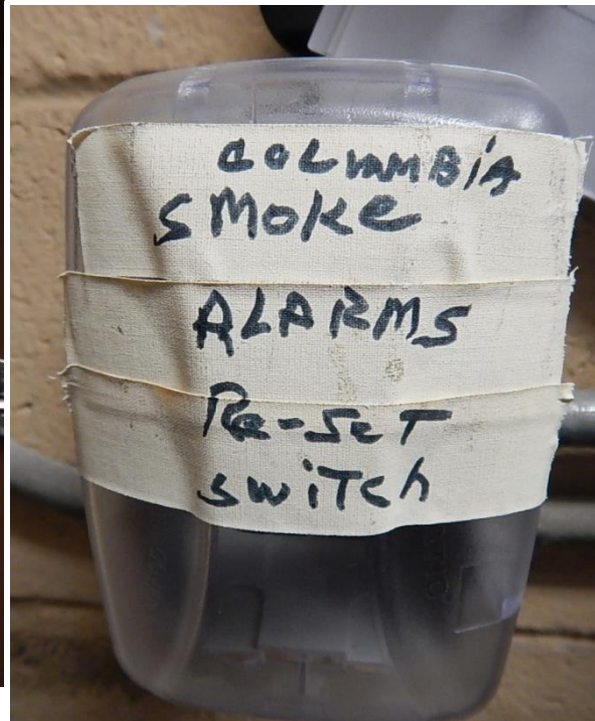 COLUMBIA
SMOKE
ALARMS
Re-SeT
SWiTch